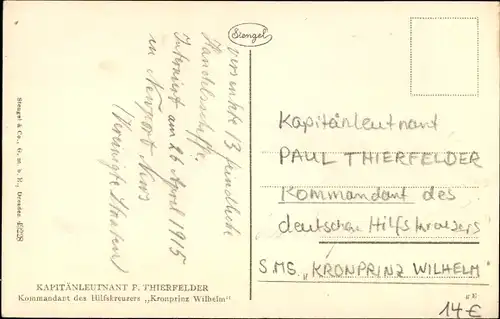 Stengel
versenkte 13 feindliche
Handelsschiffe.
Interniert am 26 April 1915
in Newport News
(Vereinigte Staaten)
Stengel & Co., G. m. b. H., Dresden 49228
KAPITÄNLEUTNANT P. THIERFELDER
Kommandant des Hilfskreuzers „Kronprinz Wilhelm“
Kapitänleutnant
PAUL THIERFELDER
Kommandant des
deutschen Hilfskreuzers
S.MS. „KRONPRINZ WILHELM“
14€